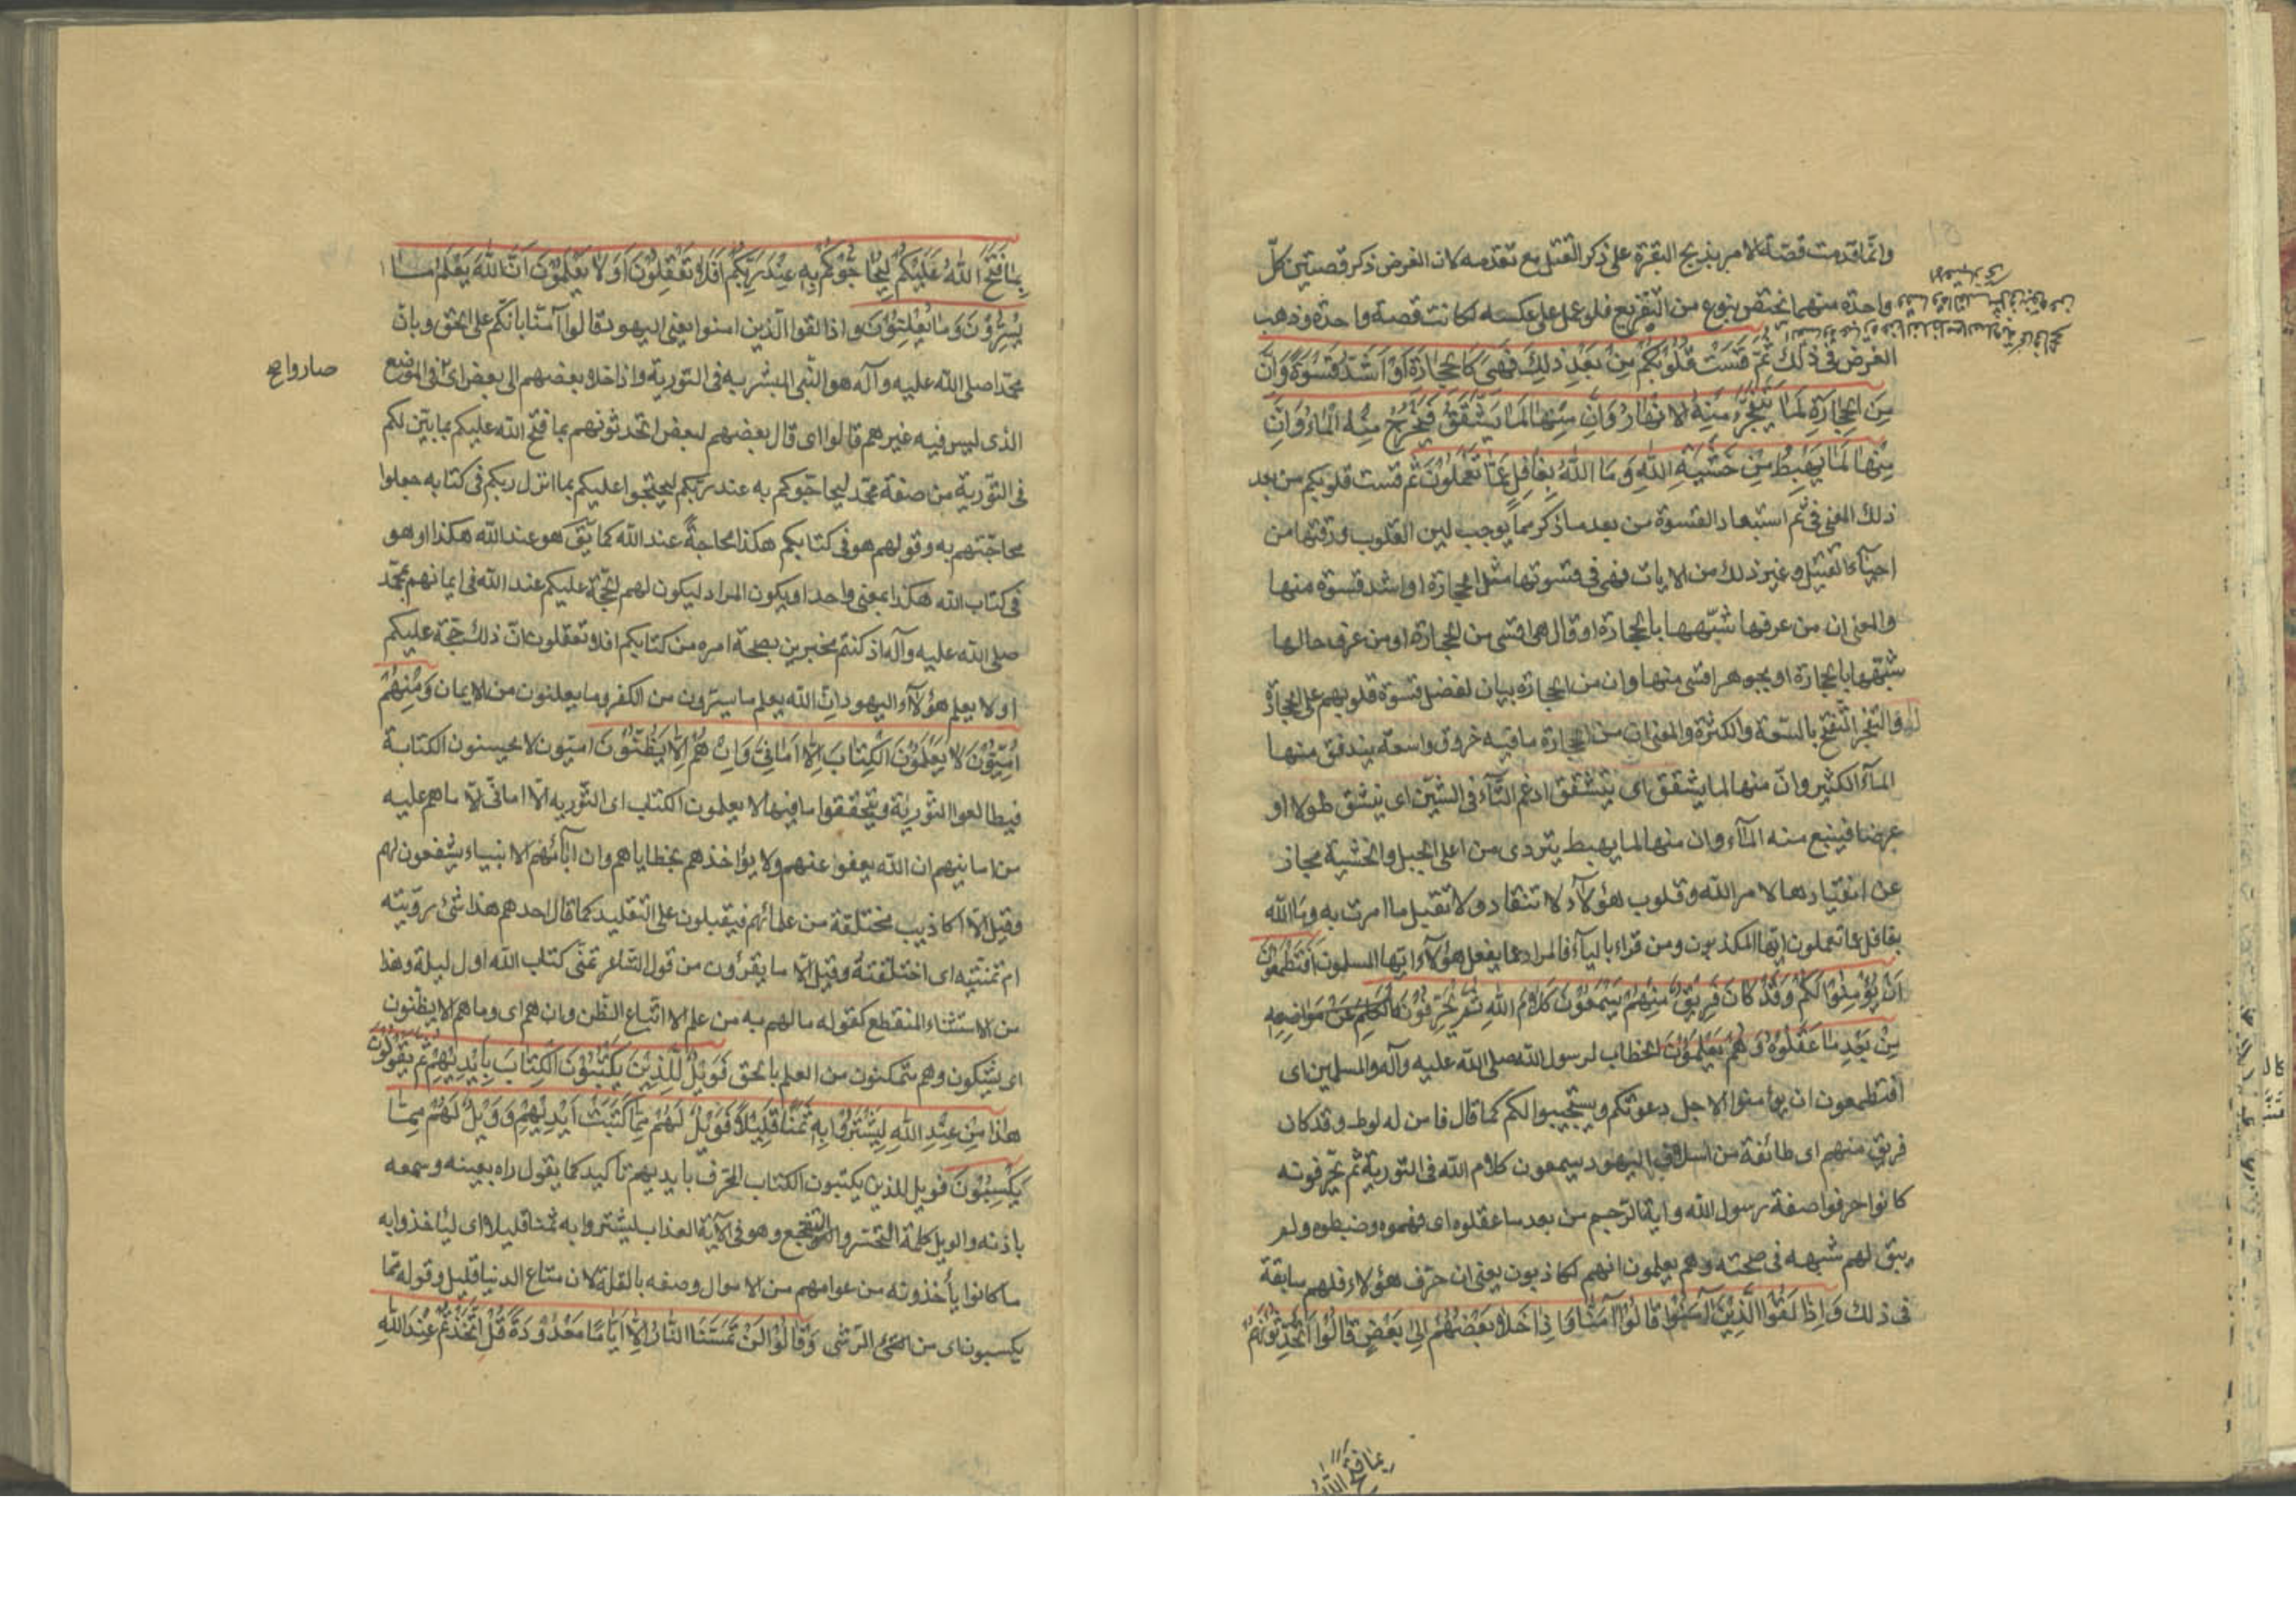 وانّما قدمت قصّة الامر بذبح البقرة على ذكر القتيل مع تقدمه لان الغرض ذكر قصتين كلّ
واحدة منهما تختص بنوع من التقريع فلو عمل على عكسه لكانت قصة واحدة وذهب
الغرض فى ذلك ثُمَّ قَسَتْ قُلُوبُكُمْ مِنْ بَعْدِ ذٰلِكَ فَهِيَ كَالْحِجَارَةِ أَوْ أَشَدُّ قَسْوَةً وَاِنَّ
مِنَ الْحِجَارَةِ لَمَا يَتَفَجَّرُ مِنْهُ الْاَنْهَارُ وَاِنَّ مِنْهَا لَمَا يَشَّقَّقُ فَيَخْرُجُ مِنْهُ الْمَاءُ وَاِنَّ
مِنْهَا لَمَا يَهْبِطُ مِنْ خَشْيَةِ اللّٰهِ وَمَا اللّٰهُ بِغَافِلٍ عَمَّا تَعْمَلُونَ ثم قست قلوبكم من بعد
ذلك المعنى فى ثم استبعاد القسوة من بعد ما ذكر مما يوجب لين القلوب ورقتها من
احياء القتيل وغير ذلك من الايات فهى فى قسوتها مثل الحجارة او اشد قسوة منها
والمعنى ان من عرفها شبّهها بالحجارة او قال هى اقسى من الحجارة او من عرف حالها
شبّهها بالحجارة او بجوهر اقسى منها وان من الحجارة بيان لفضل قسوة قلوبهم على الحجارة
والتفجّر التفتّح بالسّعة والكثرة والمعنى ان من الحجارة ما فيه خروق واسعة يندفق منها
الماء الكثير وانّ منها لما يشقق اى يتشقق ادغم التّاء فى الشين اى ينشق طولا او
عرضا فينبع منه الماء وان منها لما يهبط يتردى من اعلى الجبل والخشية مجاز
عن انقيادها لامر الله وقلوب هؤلاء لا تنقاد ولا تقبل ما امرت به وما الله
بغافل عما تعملون ايّها المكذبون ومن قراء بالياء فالمراد عما يفعل هؤلاء ايّها المسلمون اَفَتَطْمَعُونَ
اَنْ يُؤْمِنُوا لَكُمْ وَقَدْ كَانَ فَرِيقٌ مِنْهُمْ يَسْمَعُونَ كَلَامَ اللّٰهِ ثُمَّ يُحَرِّفُونَ الْكَلِمَ عَنْ مَوَاضِعِهِ
مِنْ بَعْدِ مَا عَقَلُوهُ وَهُمْ يَعْلَمُونَ الخطاب لرسول الله صلى الله عليه وآله والمسلمين اى
افتطمعون ان يؤمنوا لاجل دعوتكم ويستجيبوا لكم كما قال فامن له لوط وقد كان
فريق منهم اى طائفة من اسلاف اليهود يسمعون كلام الله فى التورية ثم يحرّفونه
كانوا حرفوا صفة رسول الله واية الرّجم من بعد ما عقلوه اى فهموه وضبطوه ولم
يبق لهم شبهه فى صحته وهم يعلمون انهم كاذبون يعنى ان حرّف هؤلاء فلهم سابقة
فى ذلك وَاِذَا لَقُوا الَّذِينَ اٰمَنُوا قَالُوا اٰمَنَّا وَاِذَا خَلَا بَعْضُهُمْ اِلَى بَعْضٍ قَالُوا اَتُحَدِّثُونَهُمْ
بما فتح الله
بِمَا فَتَحَ اللّٰهُ عَلَيْكُمْ لِيُحَاجُّوكُمْ بِهِ عِنْدَ رَبِّكُمْ اَفَلَا تَعْقِلُونَ اَوَلَا يَعْلَمُونَ اَنَّ اللّٰهَ يَعْلَمُ مَا
يُسِرُّونَ وَمَا يُعْلِنُونَ واذا لقوا الّذين امنوا يعنى اليهود قالوا آمنا بانّكم على الحق وبانّ
محمّدا صلى الله عليه وآله هو النّبى المبشر به فى التورية واذا خلا بعضهم الى بعض اى فى الموضع
صاروا
الذى ليس فيه غيرهم قالوا اى قال بعضهم لبعض اتحدثونهم بما فتح الله عليكم بما بيّن لكم
فى التّورية من صفة محمّد ليحاجّوكم به عند ربّكم ليحتجوا عليكم بما انزل ربكم فى كتابه جعلوا
محاجّتهم به وقولهم هو فى كتابكم هكذا محاجةً عند الله كما يق هو عند الله هكذا او هو
فى كتاب الله هكذا بمعنى واحد او يكون المراد ليكون لهم الحجّة عليكم عند الله فى ايمانهم بمحمّد
صلى الله عليه وآله اذ كنتم مخبرين بصحة امره من كتابكم افلا تعقلون انّ ذلك حجّة عليكم
اولا يعلم هؤلاء اليهود انّ الله يعلم ما يسرّون من الكفر وما يعلنون من الايمان وَمِنْهُمْ
اُمِّيُّونَ لَا يَعْلَمُونَ الْكِتَابَ اِلَّا اَمَانِيَّ وَاِنْ هُمْ اِلَّا يَظُنُّونَ اميّون لا يحسنون الكتابة
فيطالعوا التّورية ويتحققوا ما فيها لا يعلمون الكتاب اى التّورية الّا امانىّ الّا ما هم عليه
من امانيهم ان الله يعفو عنهم ولا يؤاخذهم بخطاياهم وان اباءهم الانبياء يشفعون لهم
وقيل الّا اكاذيب مختلقة من علمائهم فيقبلون على التقليد كما قال احدهم هذا شئ رويته
ام تمنيته اى اختلقته وقيل الّا ما يقرؤن من قول الشّاعر تمنّى كتاب الله اول ليلة وهذا
من الاستثناء المنقطع كقوله ما لهم به من علم الا اتباع الظن وان هم اى وما هم الا يظنون
اى يشكون وهم متمكنون من العلم بالحق فَوَيْلٌ لِلَّذِينَ يَكْتُبُونَ الْكِتَابَ بِاَيْدِيهِمْ ثُمَّ يَقُولُونَ
هٰذَا مِنْ عِنْدِ اللّٰهِ لِيَشْتَرُوا بِهِ ثَمَنًا قَلِيلًا فَوَيْلٌ لَهُمْ مِمَّا كَتَبَتْ اَيْدِيهِمْ وَوَيْلٌ لَهُمْ مِمَّا
يَكْسِبُونَ فويل للذين يكتبون الكتاب المحرّف بايديهم تاكيد كما يقول راه بعينه وسمعه
باذنه والويل كلمة التحسّر والتفجع وهو فى الآية العذاب ليشتروا به ثمنا قليلا اى ليأخذوا به
ما كانوا يأخذونه من عوامهم من الاموال وصفه بالقلة لان متاع الدنيا قليل وقوله مما
يكسبون اى من الرّشى وَقَالُوا لَنْ تَمَسَّنَا النَّارُ اِلَّا اَيَّامًا مَعْدُودَةً قُلْ اَتَّخَذْتُمْ عِنْدَ اللّٰهِ